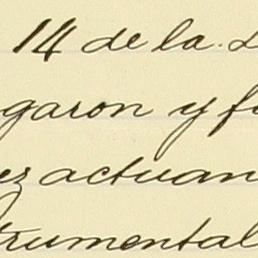 14 de la
garon y f
ez actuan
trumental